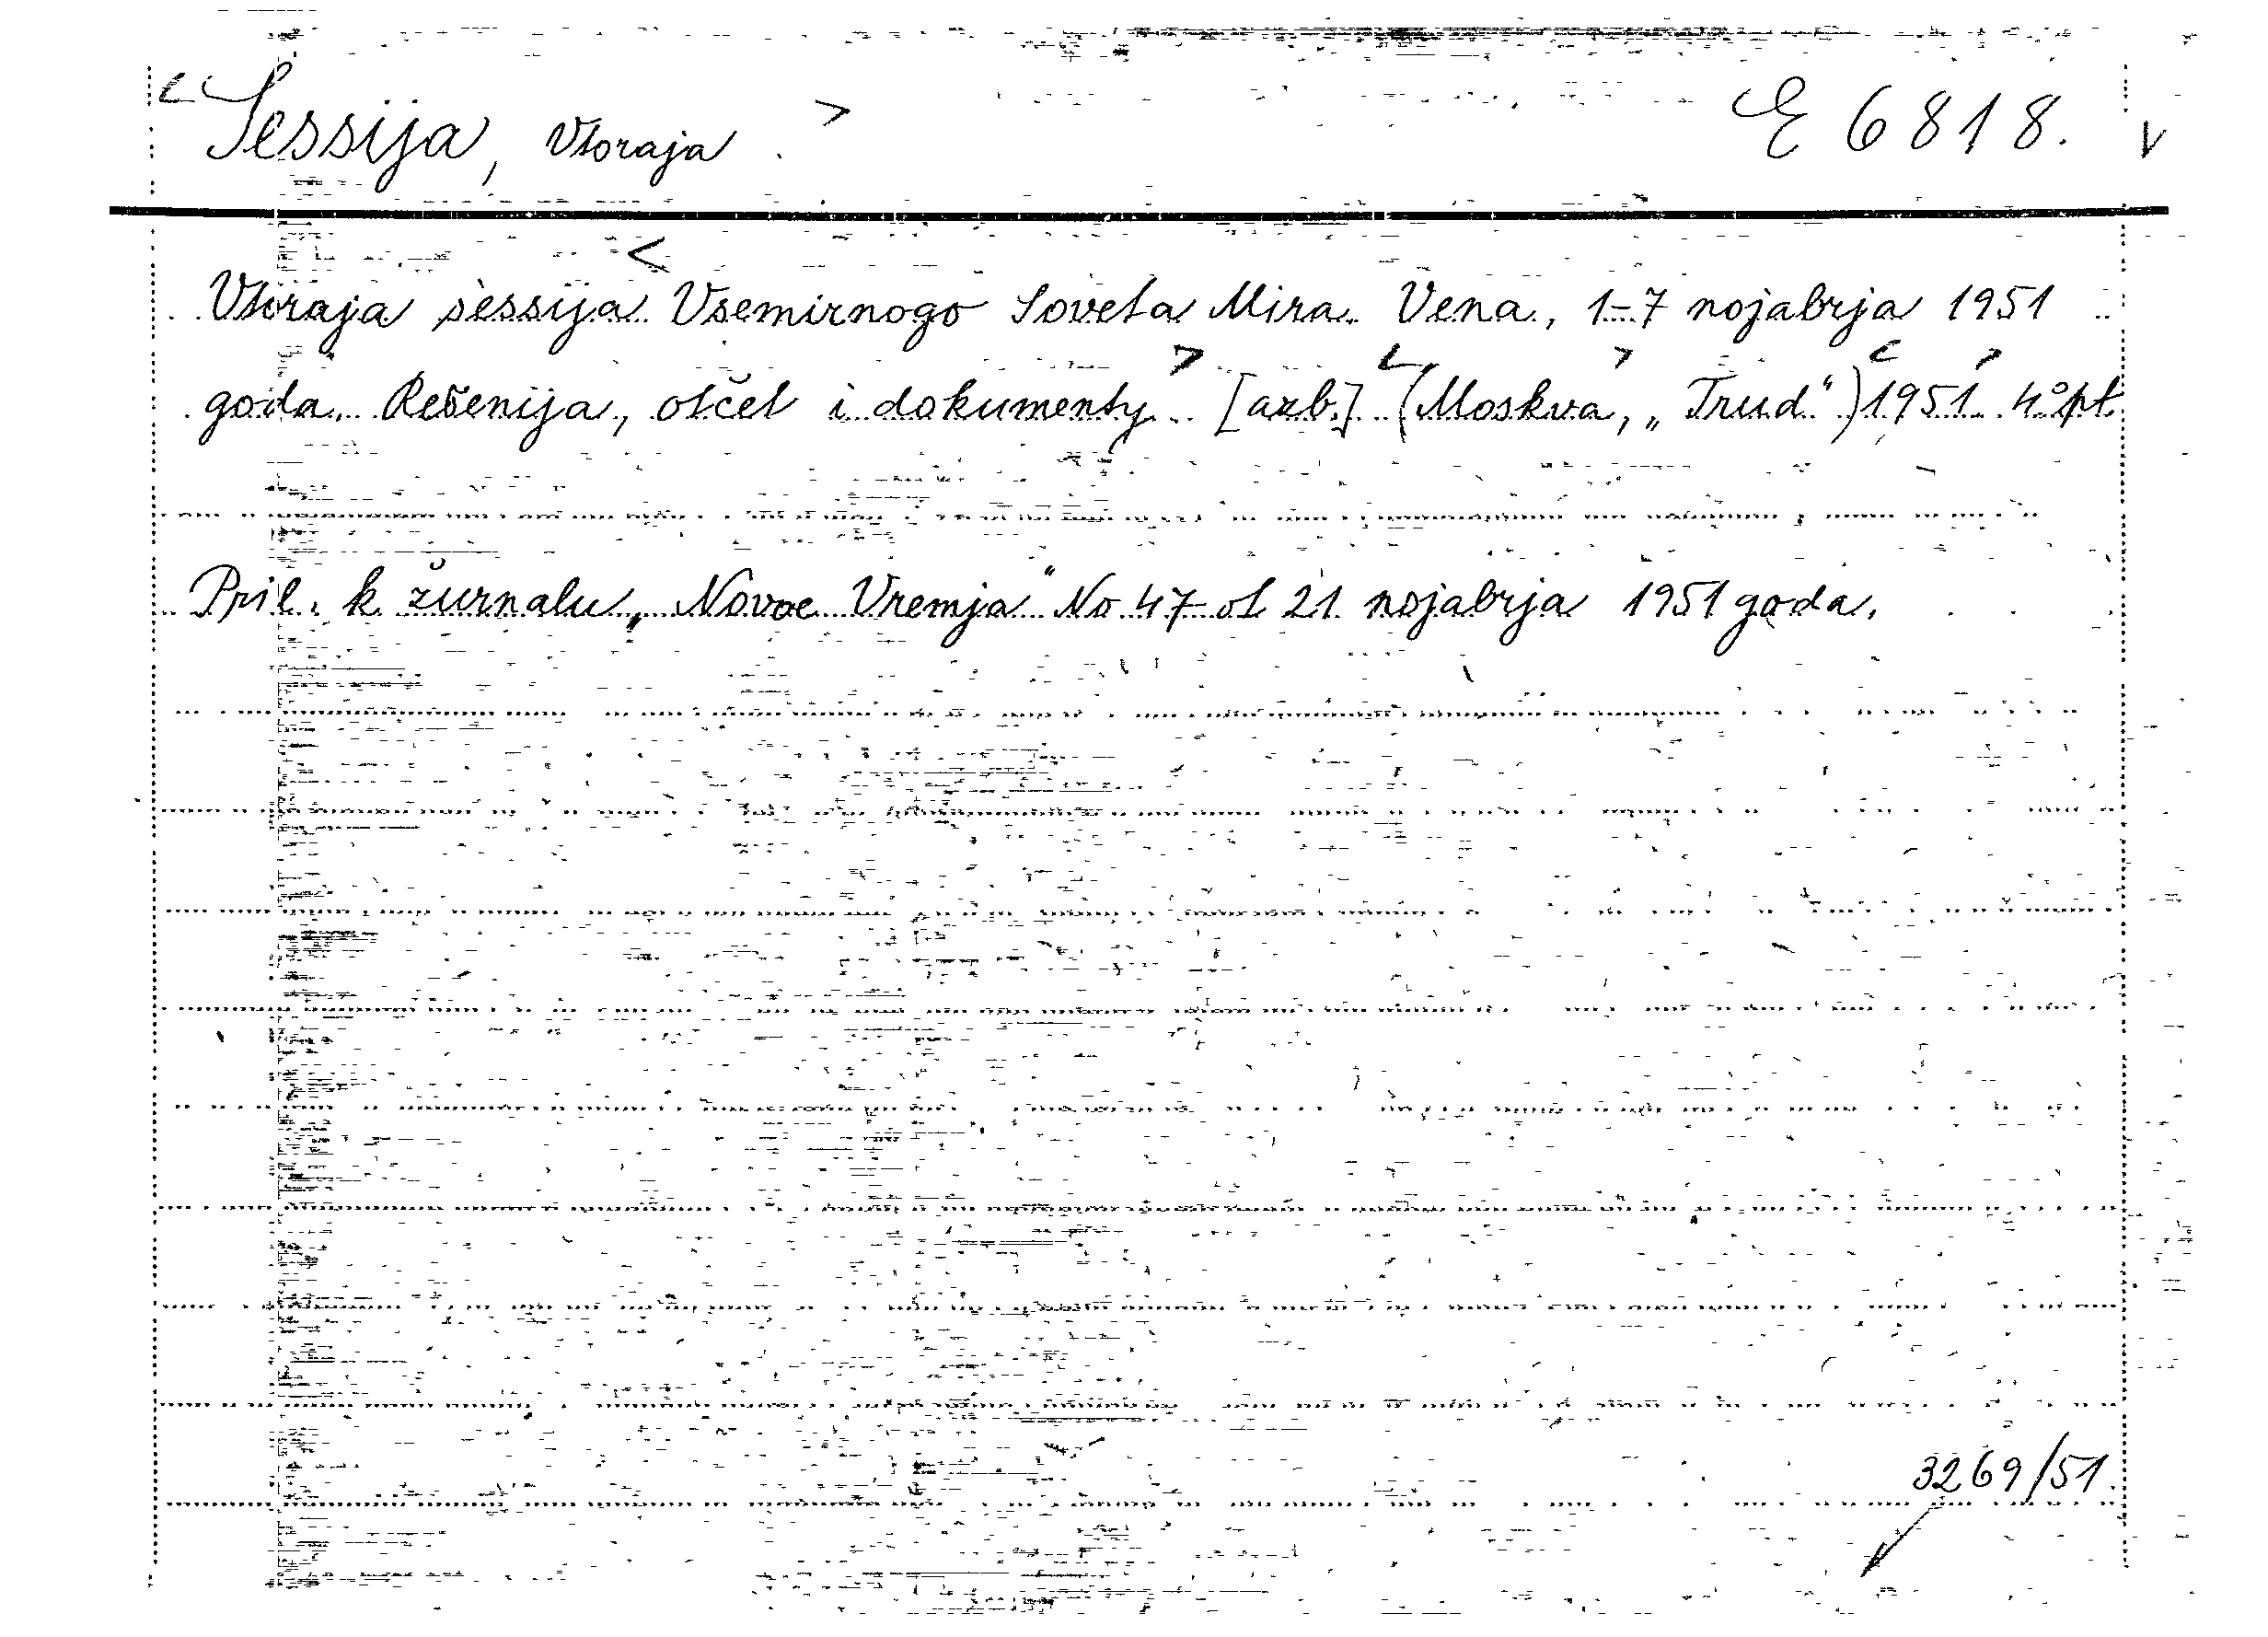 <Sessija, Vtoraja > E 6818. v
<
Vtoraja sessija Vsemirnogo Soveta Mira. Vena, 1-7 nojabrja 1951
goda. Rešenija, otčet i dokumenty. > [azb.] <(Moskva, „Trud“)> <1951> 4° pt
Pril. k žurnalu „Novoe Vremja“ No 47 ot 21 nojabrja 1951 goda.
3269/51.